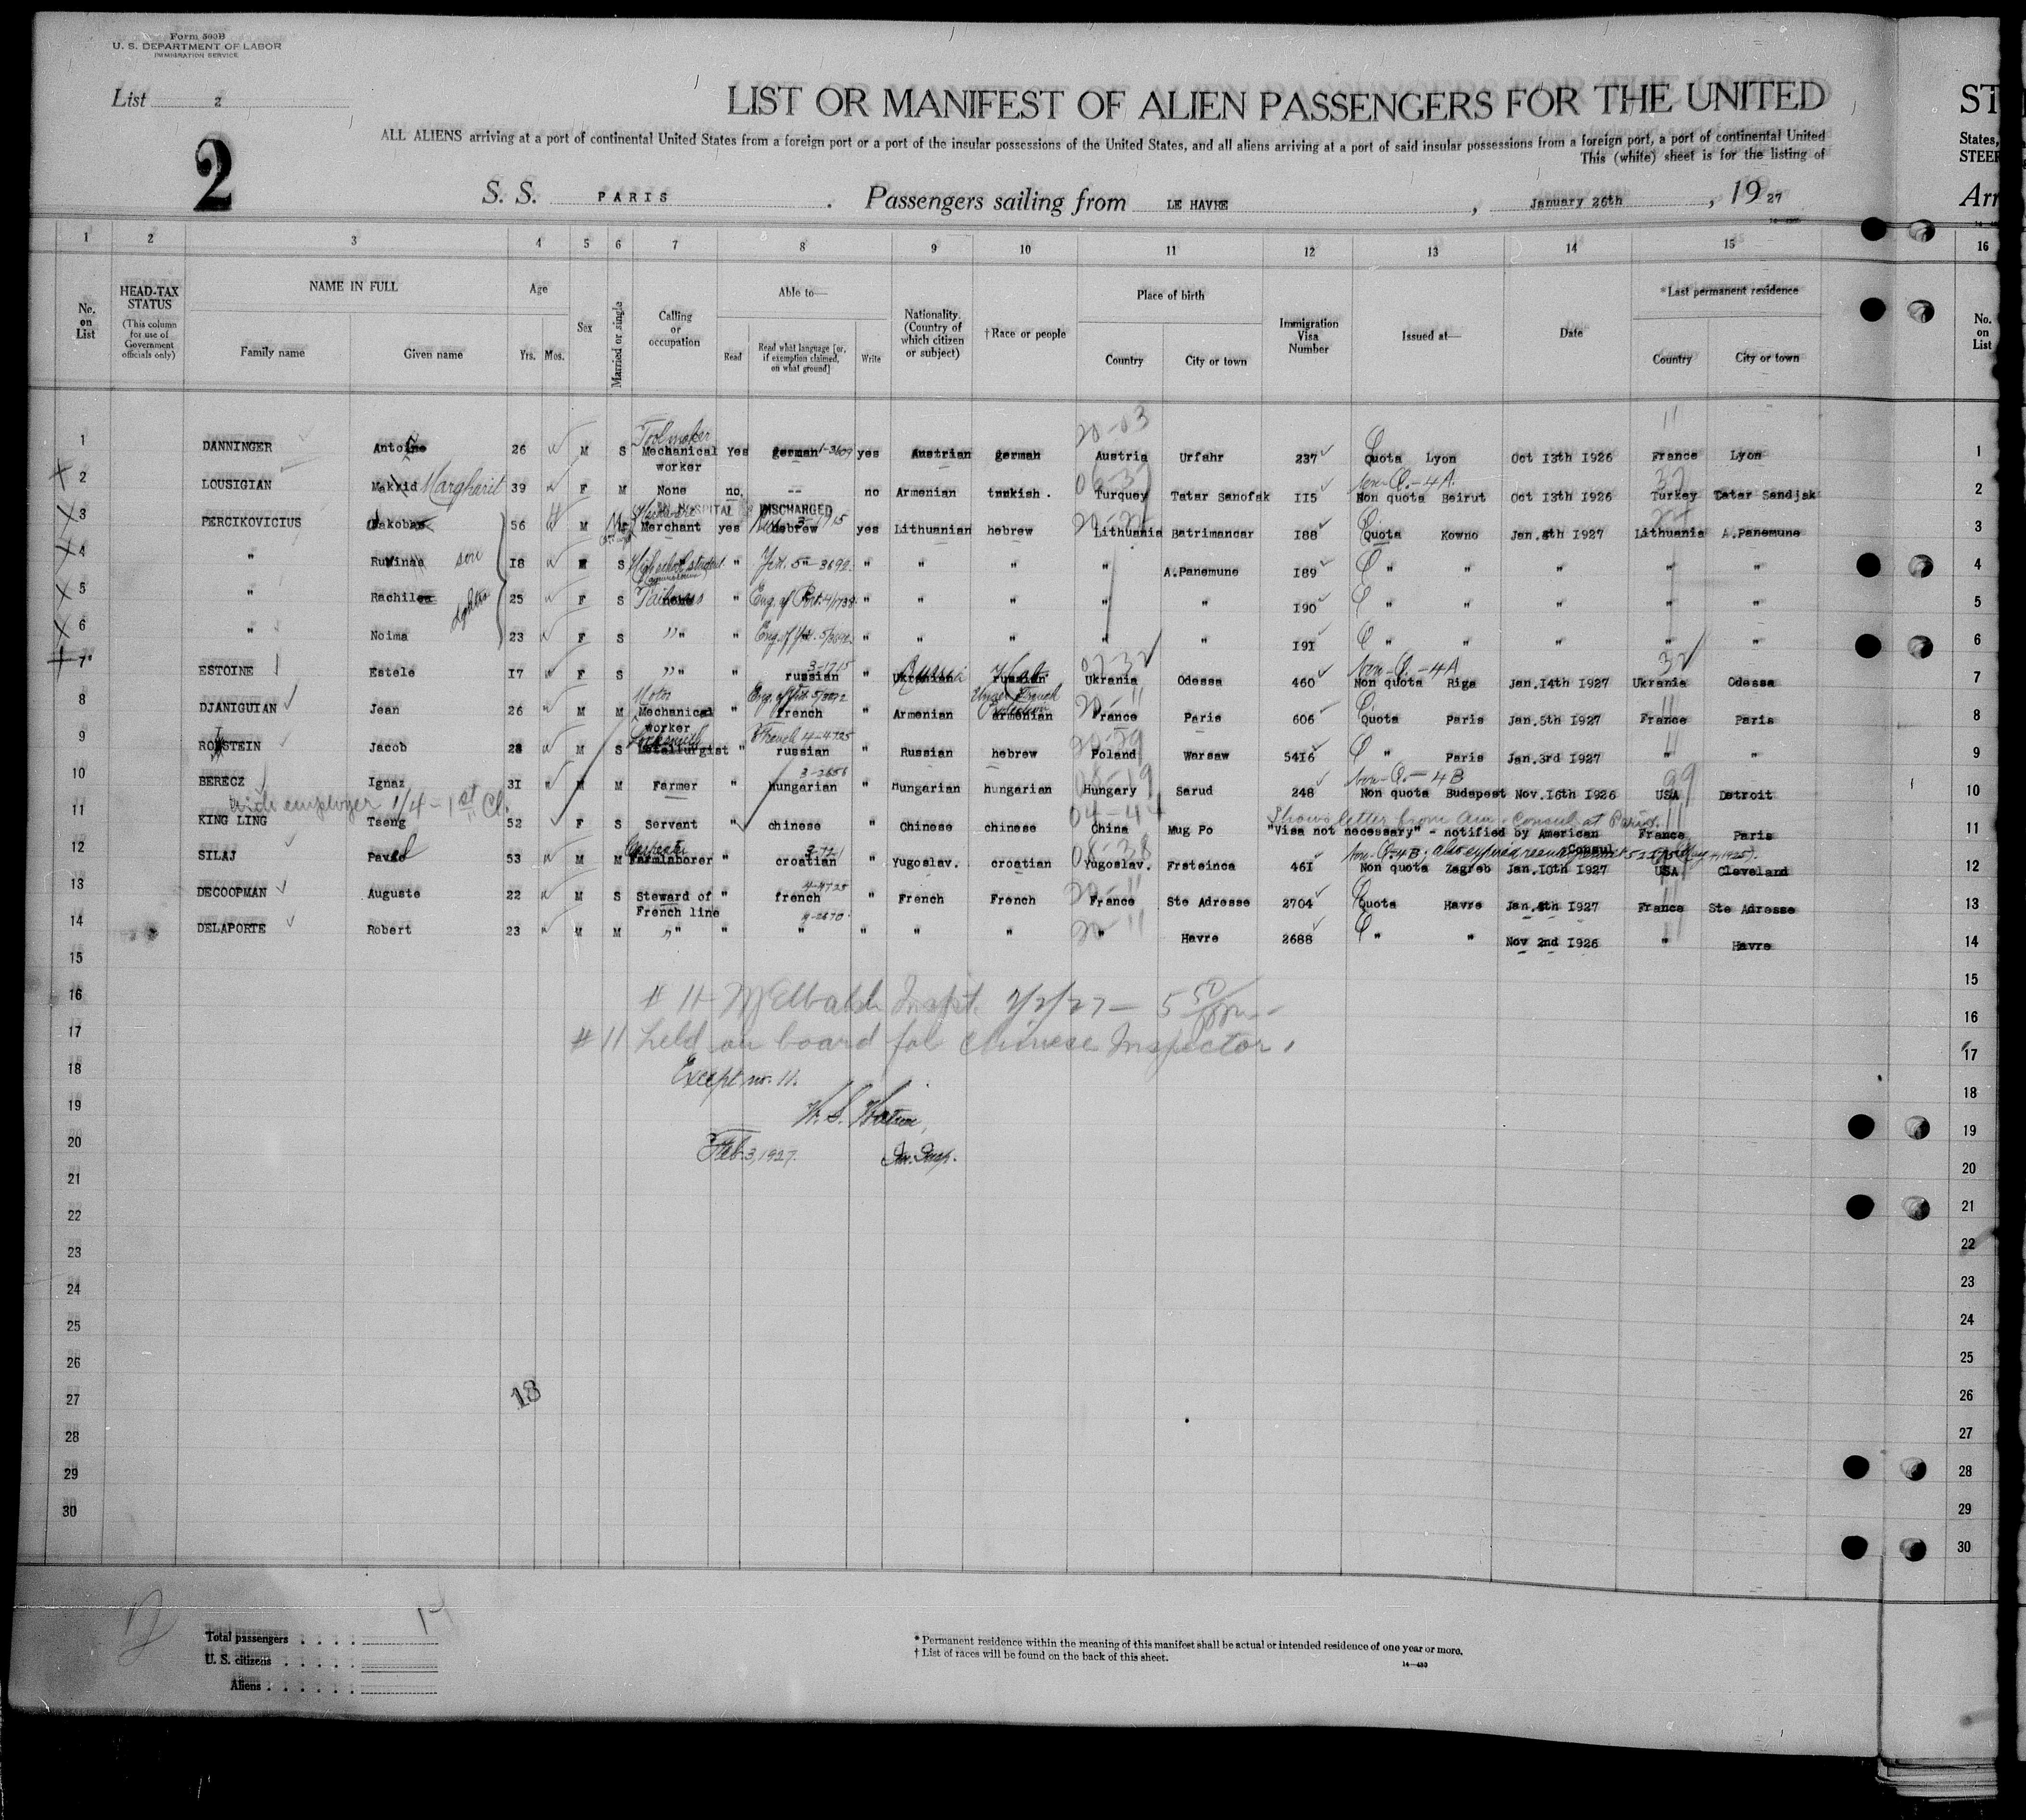 Form 500B
U. S. DEPARTMENT OF LABOR
IMMIGRATION SERVICE
List 2
2
LIST OR MANIFEST OF ALIEN PASSENGERS FOR THE UNITED
ST
ALL ALIENS arriving at a port of continental United States from a foreign port or a port of the insular possessions of the United States, and all aliens arriving at a port of said insular possessions from a foreign port, a port of continental United
States,
This (white) sheet is for the listing of
STEER
S. S. PARIS . Passengers sailing from LE HAVRE , January 26th , 19 27
Arr
1 2 3 4 5 6 7 8 9 10 11 12 13 14 15 16
No. on List
HEAD-TAX STATUS
(This column for use of Government officials only)
NAME IN FULL
Family name Given name
Age
Yrs. Mos.
Sex
Married or single
Calling or occupation
Able to—
Read
Read what language [or, if exemption claimed, on what ground]
Write
Nationality. (Country of which citizen or subject)
†Race or people
Place of birth
Country City or town
Immigration Visa Number
Issued at—
Date
*Last permanent residence
Country City or town
No. on List
20-03 11
Toolmaker
1 DANNINGER Antoine 26 M S Mechanical worker Yes german 1-3609 yes Austrian german Austria Urfahr 237 Quota Lyon Oct 13th 1926 France Lyon 1
Non-Q.-4A
2 LOUSIGIAN Makrid Margharit 39 F M None no. -- no Armenian turkish. Turquey Tatar Sanofak 115 Non quota Beirut Oct 13th 1926 Turkey Tatar Sandjak 2
IN HOSPITAL DISCHARGED
3 PERCIKOVICIUS Jakobas 56 M Merchant yes Hebrew yes Lithuanian hebrew Lithuania Batrimancar 188 Quota Kowno Jan.8th 1927 Lithuania A.Panemune 3
4 " son 18 S High school student " Yid. 5-3692 " " " " A.Panemune 189 Q " " " " " 4
5 " Rachilea 25 F S Tailoress " " " " " " 190 Q " " " " " 5
6 " Noima 23 F S " " " " " " " 191 Q " " " " " 6
3-1715 Non-Q.-4A 32
7 ESTOINE Estele 17 F S " " russian " Ukranian russian Ukrania Odessa 460 Non quota Riga Jan.14th 1927 Ukrania Odessa 7
Motor Under French Protection
8 DJANIGUIAN Jean 26 M M Mechanical worker " french " Armenian armenian France Paris 606 Quota Paris Jan.5th 1927 France Paris 8
Locksmith French 4-4725
9 ROTSTEIN Jacob 28 M S Metallurgist " russian " Russian hebrew Poland Warsaw 5416 Q " Paris Jan.3rd 1927 " " 9
3-2656 Non-Q.-4B
10 BERECZ Ignaz 31 M M Farmer " hungarian " Hungarian hungarian Hungary Sarud 248 Non quota Budapest Nov.16th 1926 USA Detroit 10
With employer 1/4 - 1st Cl.
Shows letter from Am. Consul at Paris.
11 KING LING Tseng 52 F S Servant " chinese " Chinese chinese China Mug Po "Visa not necessary" - notified by American Consul France Paris 11
Carpenter
12 SILAJ Pavel 53 M M Farmlaborer " croatian " Yugoslav. croatian Yugoslav. Frsteinca 461 Non quota Zagreb Jan.10th 1927 USA Cleveland 12
4-4725
13 DECOOPMAN Auguste 22 M S Steward of French line " french " French French France Ste Adresse 2704 Quota Havre Jan.8th 1927 France Ste Adresse 13
4-2670
14 DELAPORTE Robert 23 M M " " " " " " " Havre 2688 Q " " Nov 2nd 1926 " Havre 14
15 15
16 16
17 17
18 18
19 19
20 20
21 21
22 22
23 23
24 24
25 25
26 26
27 27
28 28
29 29
30 30
# 11 Inspt. 2/2/27 — 5 50 pm
# 11 held on board for Chinese Inspector.
Except no. 11.
W. S. Watson,
Feb. 3, 1927. Im. Insp.
13
Total passengers . . . . 14
U. S. citizens . . . . .
Aliens . . . . . .
* Permanent residence within the meaning of this manifest shall be actual or intended residence of one year or more.
† List of races will be found on the back of this sheet.
14—430